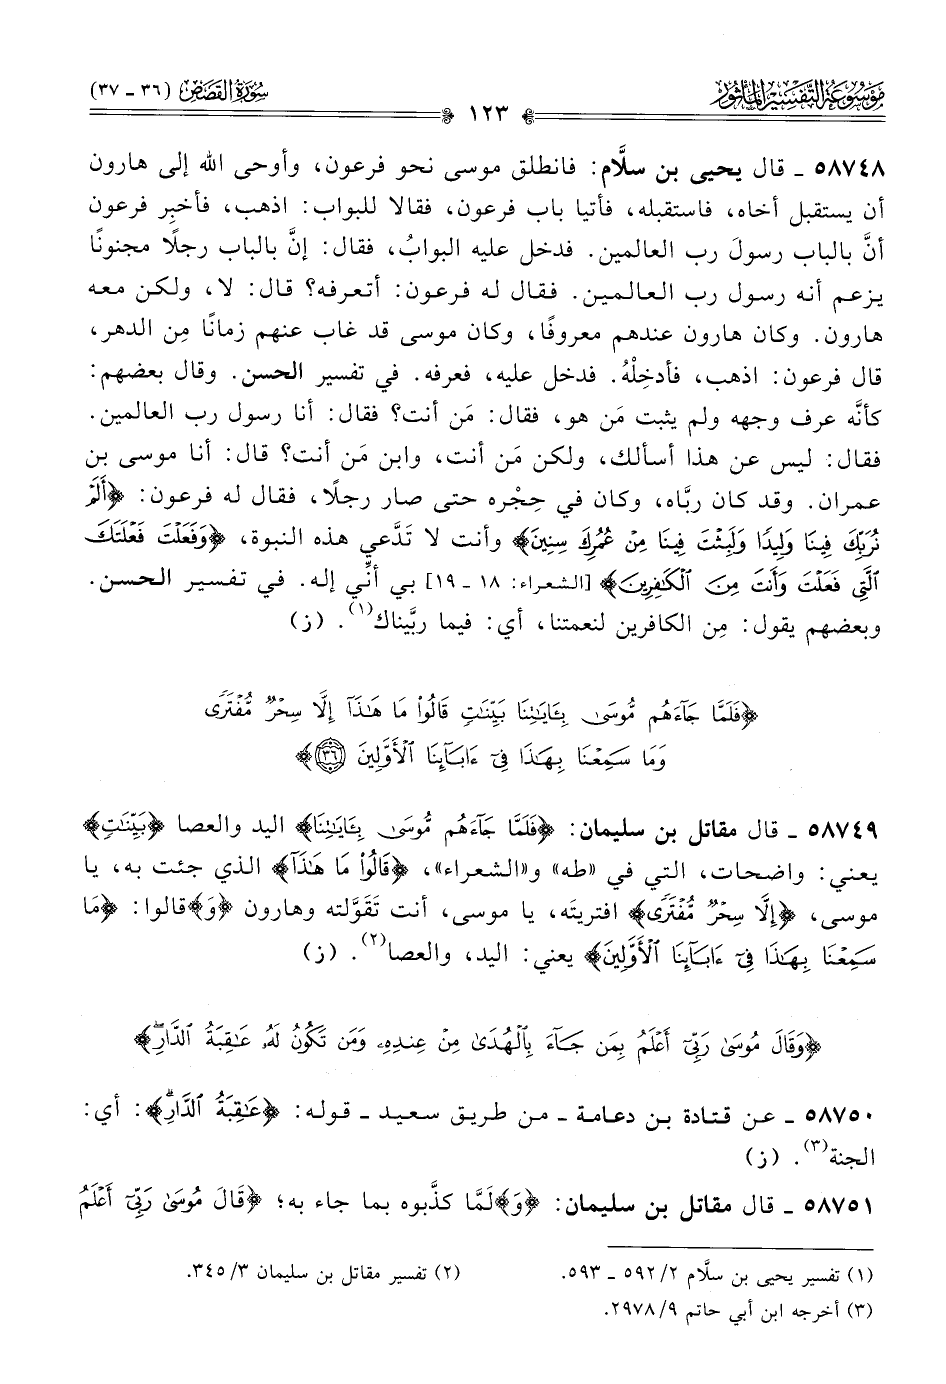 مَوْسُوعَة التَّفْسِيْر المَأْثُور
١٢٣
سُورَةُ القَصَص (٣٦ - ٣٧)
٥٨٧٤٨ - قال يحيى بن سلَّام: فانطلق موسى نحو فرعون، وأوحى الله إلى هارون
أن يستقبل أخاه، فاستقبله، فأتيا باب فرعون، فقالا للبواب: اذهب، فأخبِر فرعون
أنَّ بالباب رسولَ رب العالمين. فدخل عليه البوابُ، فقال: إنَّ بالباب رجلًا مجنونًا
يزعم أنه رسول رب العالمين. فقال له فرعون: أتعرفه؟ قال: لا، ولكن معه
هارون. وكان هارون عندهم معروفًا، وكان موسى قد غاب عنهم زمانًا مِن الدهر،
قال فرعون: اذهب، فأدخِلْهُ. فدخل عليه، فعرفه. في تفسير الحسن. وقال بعضهم:
كأنَّه عرف وجهه ولم يثبت مَن هو، فقال: مَن أنت؟ فقال: أنا رسول رب العالمين.
فقال: ليس عن هذا أسألك، ولكن مَن أنت، وابن مَن أنت؟ قال: أنا موسى بن
عمران. وقد كان ربَّاه، وكان في حِجْره حتى صار رجلًا، فقال له فرعون: ﴿أَلَمْ
نُرَبِّكَ فِينَا وَلِيدًا وَلَبِثْتَ فِينَا مِنْ عُمُرِكَ سِنِينَ﴾ وأنت لا تَدَّعي هذه النبوة، ﴿وَفَعَلْتَ فَعْلَتَكَ
ٱلَّتِي فَعَلْتَ وَأَنتَ مِنَ ٱلْكَٰفِرِينَ﴾ [الشعراء: ١٨ - ١٩] بي أنِّي إله. في تفسير الحسن.
وبعضهم يقول: مِن الكافرين لنعمتنا، أي: فيما ربَّيناك(١). (ز)
﴿فَلَمَّا جَآءَهُم مُّوسَىٰ بِـَٔايَٰتِنَا بَيِّنَٰتٍ قَالُوا۟ مَا هَٰذَآ إِلَّا سِحْرٌ مُّفْتَرًى
وَمَا سَمِعْنَا بِهَٰذَا فِىٓ ءَابَآئِنَا ٱلْأَوَّلِينَ ٣٦﴾
٥٨٧٤٩ - قال مقاتل بن سليمان: ﴿فَلَمَّا جَآءَهُم مُّوسَىٰ بِـَٔايَٰتِنَا﴾ اليد والعصا ﴿بَيِّنَٰتٍ﴾
يعني: واضحات، التي في «طه» و«الشعراء»، ﴿قَالُوا۟ مَا هَٰذَآ﴾ الذي جئت به، يا
موسى، ﴿إِلَّا سِحْرٌ مُّفْتَرًى﴾ افتريتَه، يا موسى، أنت تَقَوَّلته وهارون ﴿وَ﴾قالوا: ﴿مَا
سَمِعْنَا بِهَٰذَا فِىٓ ءَابَآئِنَا ٱلْأَوَّلِينَ﴾ يعني: اليد، والعصا(٢). (ز)
﴿وَقَالَ مُوسَىٰ رَبِّىٓ أَعْلَمُ بِمَن جَآءَ بِٱلْهُدَىٰ مِنْ عِندِهِۦ وَمَن تَكُونُ لَهُۥ عَٰقِبَةُ ٱلدَّارِۖ﴾
٥٨٧٥٠ - عن قتادة بن دعامة - من طريق سعيد - قوله: ﴿عَٰقِبَةُ ٱلدَّارِۖ﴾: أي:
الجنة(٣). (ز)
٥٨٧٥١ - قال مقاتل بن سليمان: ﴿وَ﴾لَمَّا كذَّبوه بما جاء به؛ ﴿قَالَ مُوسَىٰ رَبِّىٓ أَعْلَمُ
(١) تفسير يحيى بن سلَّام ٢/ ٥٩٢ - ٥٩٣.
(٢) تفسير مقاتل بن سليمان ٣/ ٣٤٥.
(٣) أخرجه ابن أبي حاتم ٩/ ٢٩٧٨.